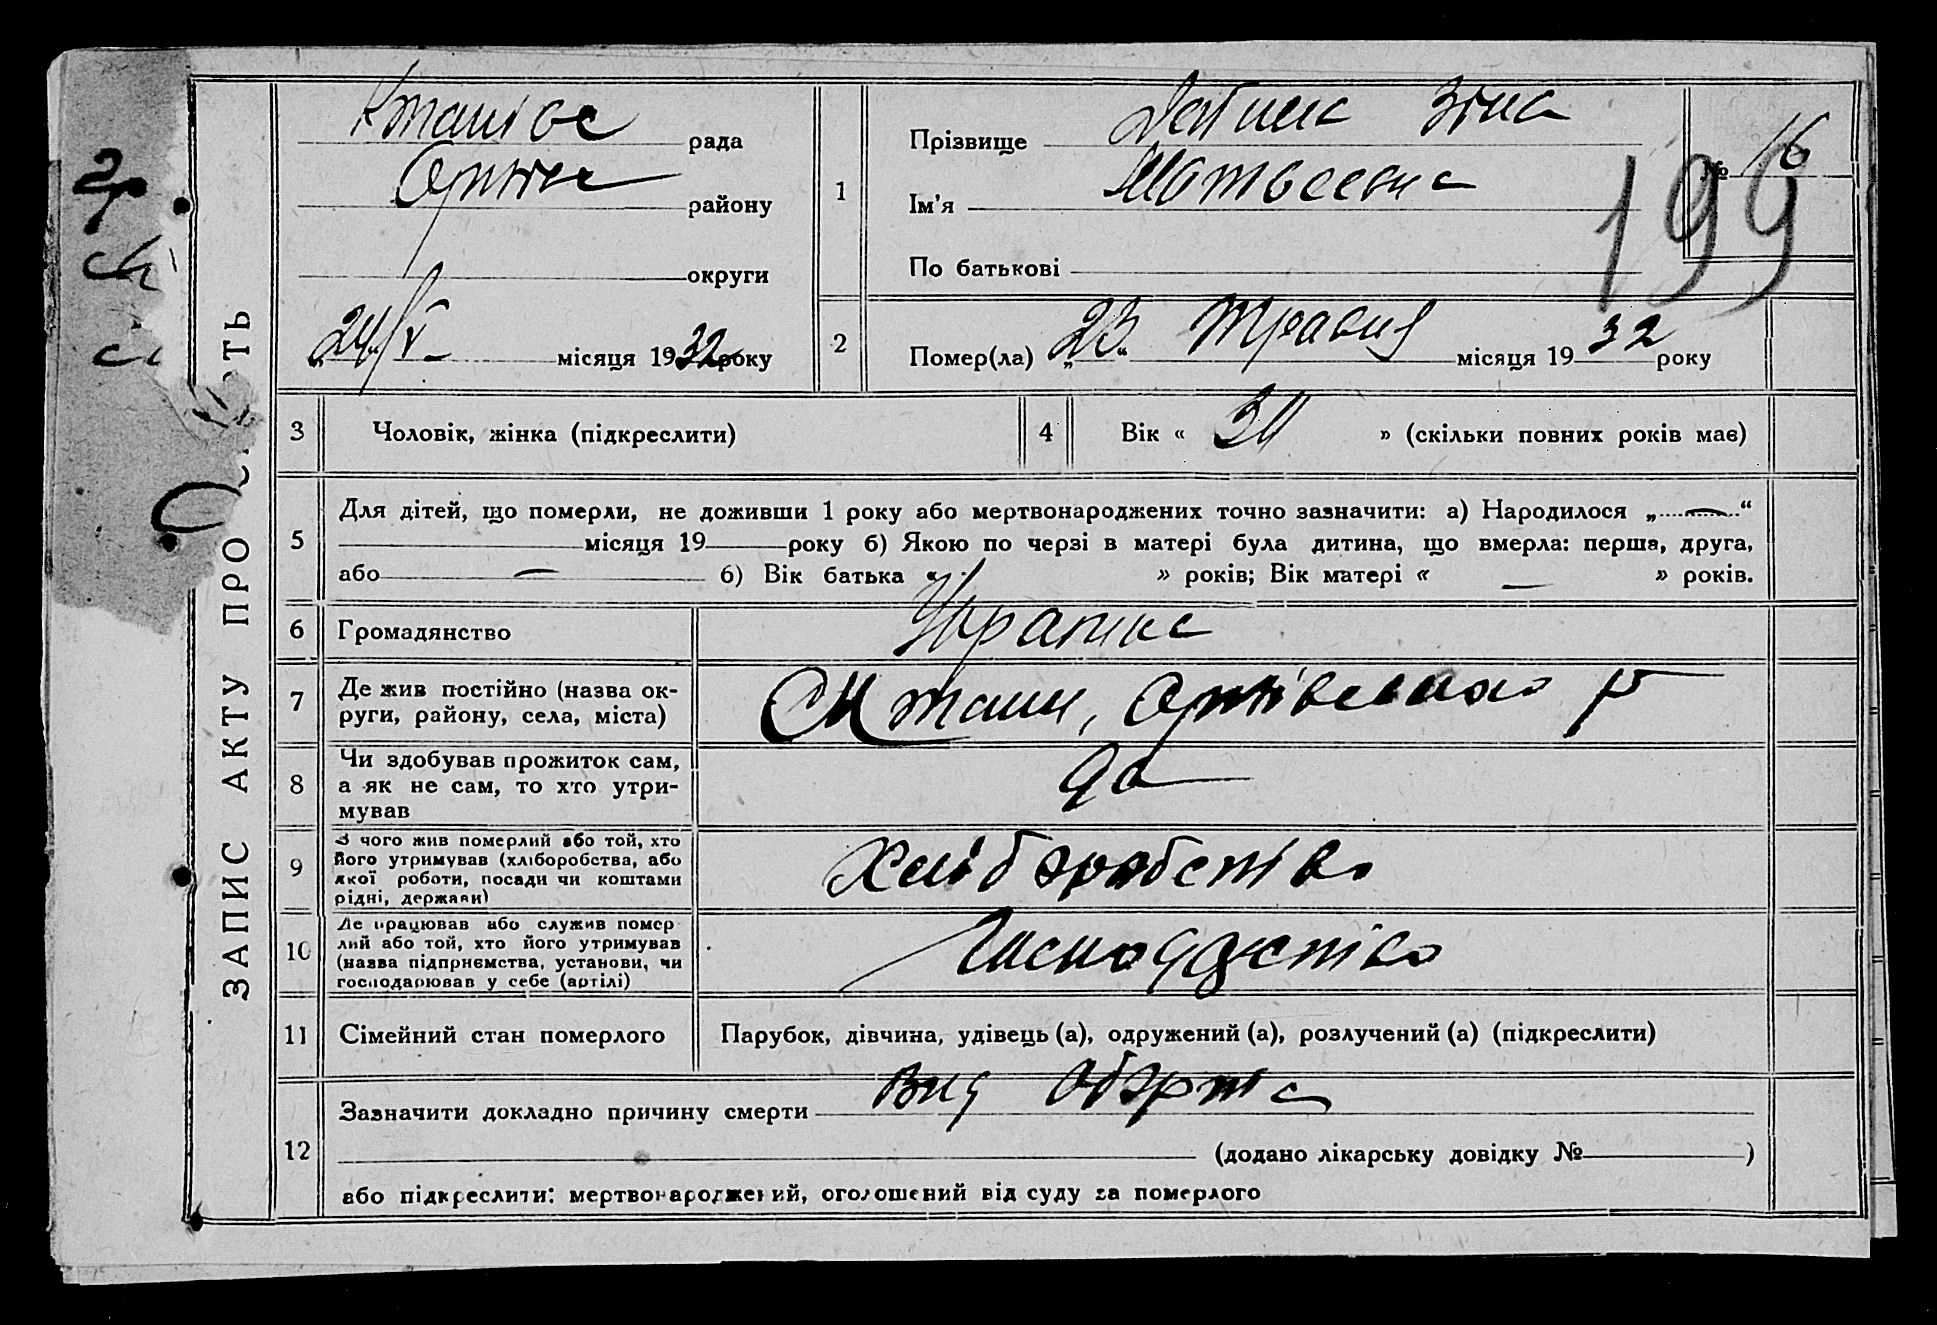 ЗАПИС АКТУ ПРО
рада
району
округи
24/V місяця 1932 року
1
Прізвище
Зіна
Ім'я
По батькові
№ 16
199
2
Помер(ла) „23“ Травня місяця 1932 року
3
Чоловік, жінка (підкреслити)
4
Вік « 34 » (скільки повних років має)
5
Для дітей, що померли, не доживши 1 року або мертвонароджених точно зазначити: а) Народилося „—“
місяця 19 року б) Якою по черзі в матері була дитина, що вмерла: перша, друга,
або — б) Вік батька « » років; Вік матері « — » років.
6
Громадянство
Україна
7
Де жив постійно (назва ок-
руги, району, села, міста)
8
Чи здобував прожиток сам,
а як не сам, то хто утри-
мував
да
9
З чого жив померлий або той, хто
його утримував (хліборобства, або
якої роботи, посади чи коштами
рідні, держави)
Хліборобство
10
Де працював або служив помер
лий або той, хто його утримував
(назва підприємства, установи, чи
господарював у себе (артілі)
11
Сімейний стан померлого
Парубок, дівчина, удівець (а), одружений (а), розлучений (а) (підкреслити)
12
Зазначити докладно причину смерти
(додано лікарську довідку № )
або підкреслити: мертвонароджений, оголошений від суду за померлого